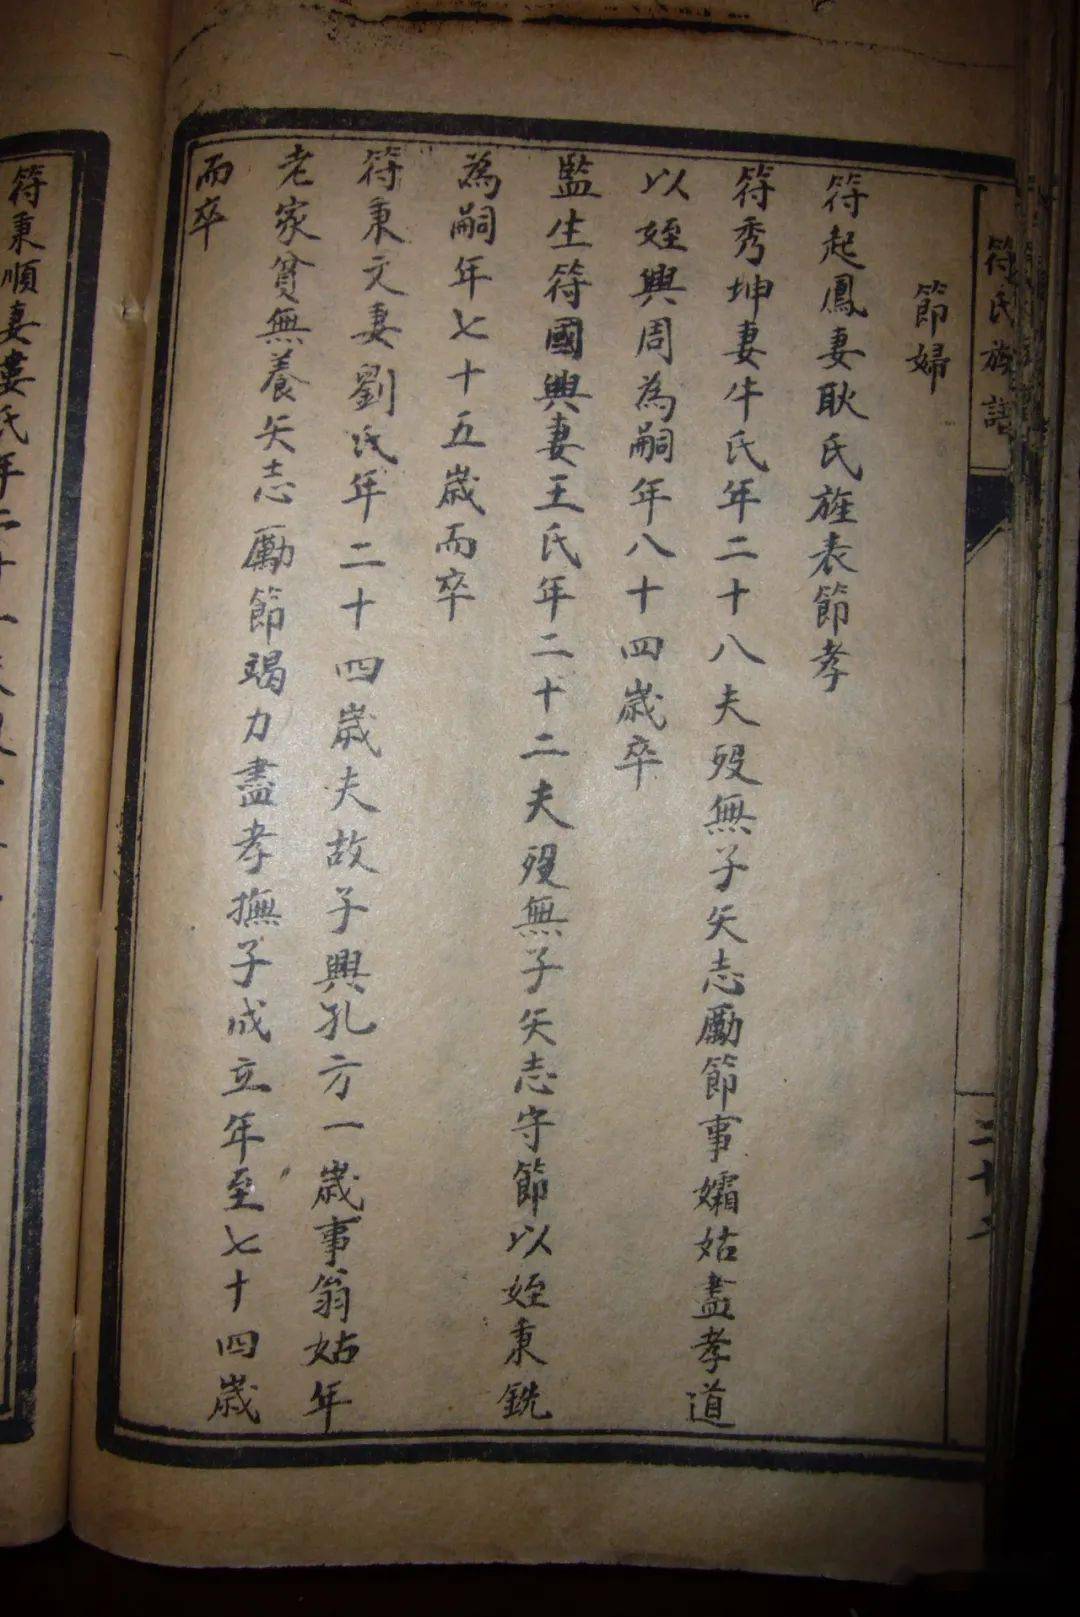 符氏族譜
節婦
符起鳳妻耿氏旌表節孝
符秀坤妻牛氏年二十八夫歿無子矢志勵節事孀姑盡孝道
以姪興周為嗣年八十四歲卒
監生符國興妻王氏年二十二夫歿無子矢志守節以姪秉銑
為嗣年七十五歲而卒
符秉文妻劉氏年二十四歲夫故子興孔方一歲事翁姑年
老家貧無養矢志勵節竭力盡孝撫子成立年至七十四歲
而卒
符秉順妻婁氏年二十